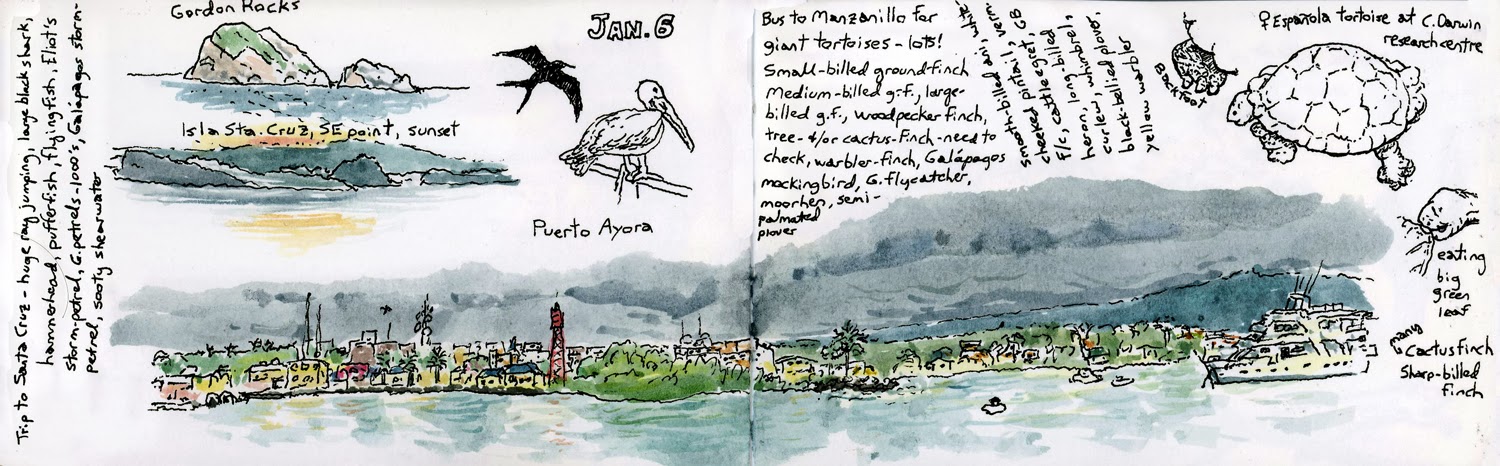 Trip to Santa Cruz - huge ray jumping, large black shark,
hammerhead, pufferfish, flyingfish, Elliot's
storm-petrel, G. petrels-1000's, Galápagos storm-
petrel, sooty shearwater
Gordon Rocks
Isla Sta. Cruz, SE point, sunset
JAN. 6
Puerto Ayora
Bus to Manzanillo for
giant tortoises - lots!
Small-billed ground-finch
Medium-billed g.f., large-
billed g.f., woodpecker finch,
tree- &/or cactus-finch-need to
check, warbler-finch, Galápagos
mockingbird, G. flycatcher,
moorhen, semi-
palmated
plover
smooth-billed ani, white-
cheeked pintail, verm.
f/c, cattle egret, GB
heron, long-billed
curlew, whimbrel,
black-bellied plover,
yellow warbler
Back foot
♀ Española tortoise at C. Darwin
research centre
eating
big
green
leaf
many
Cactus finch
Sharp-billed
finch